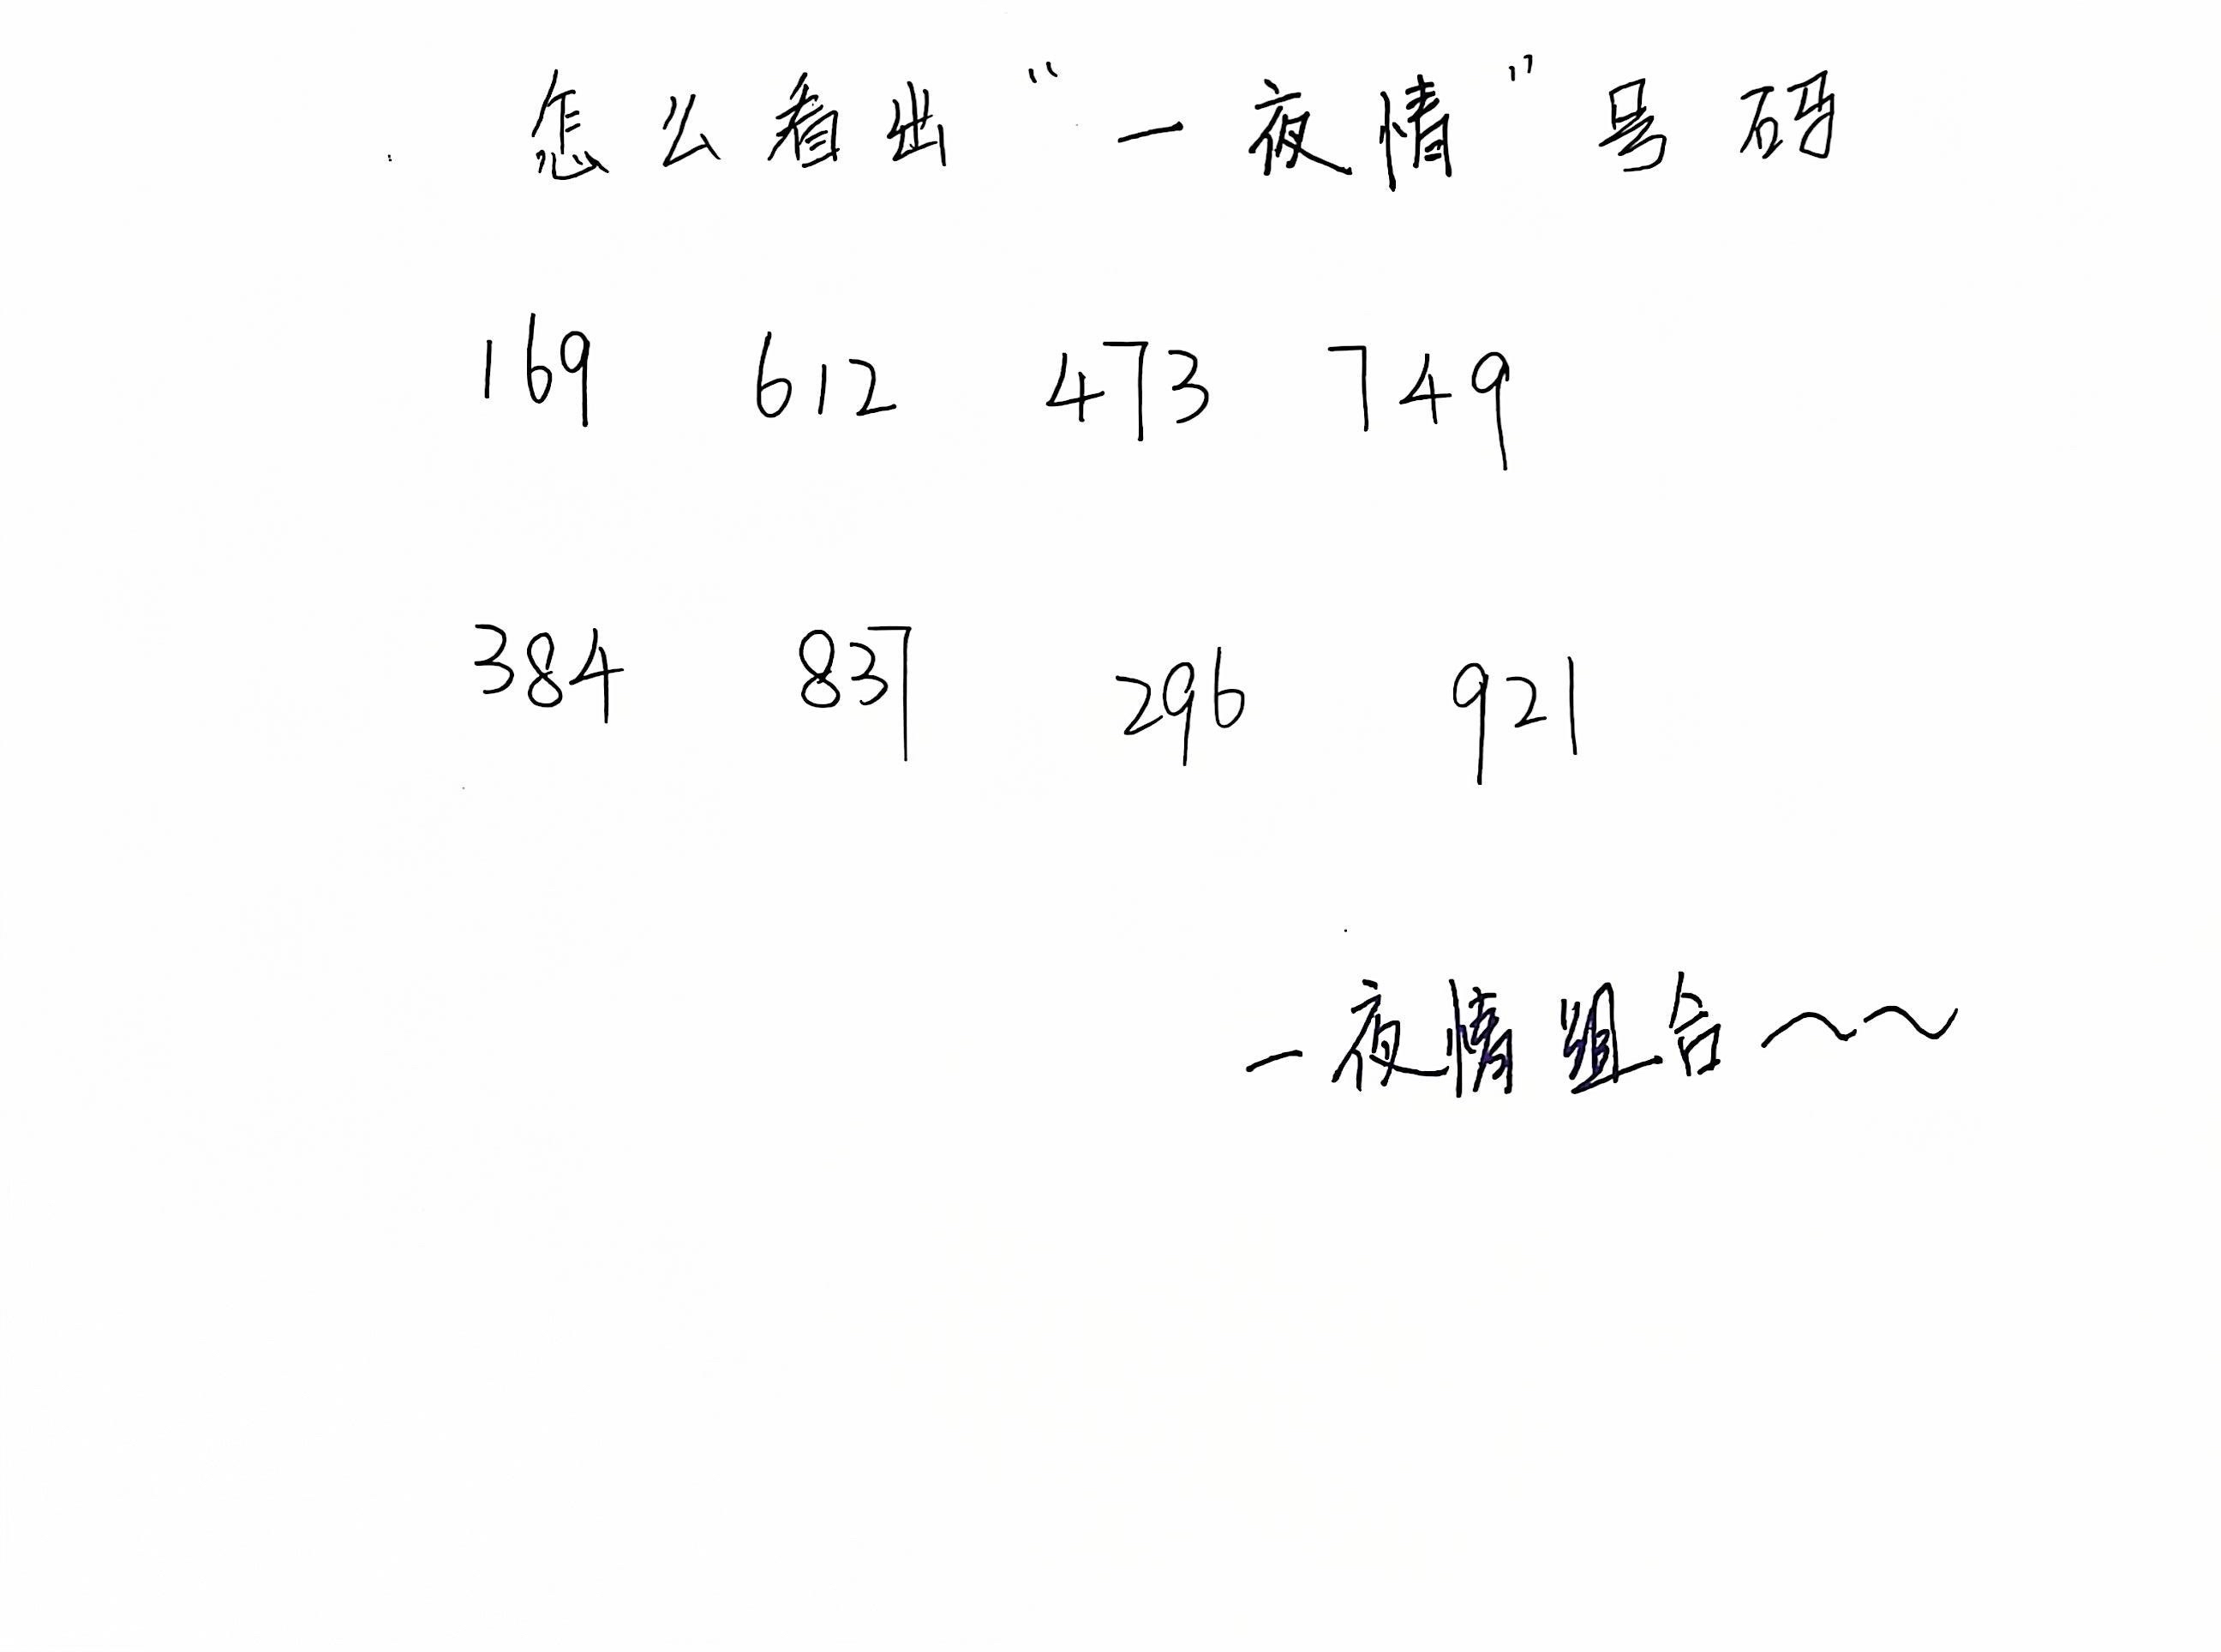 怎么看出“一夜情”号码
169 612 473 749
384 837 296 921
一夜情组合~~